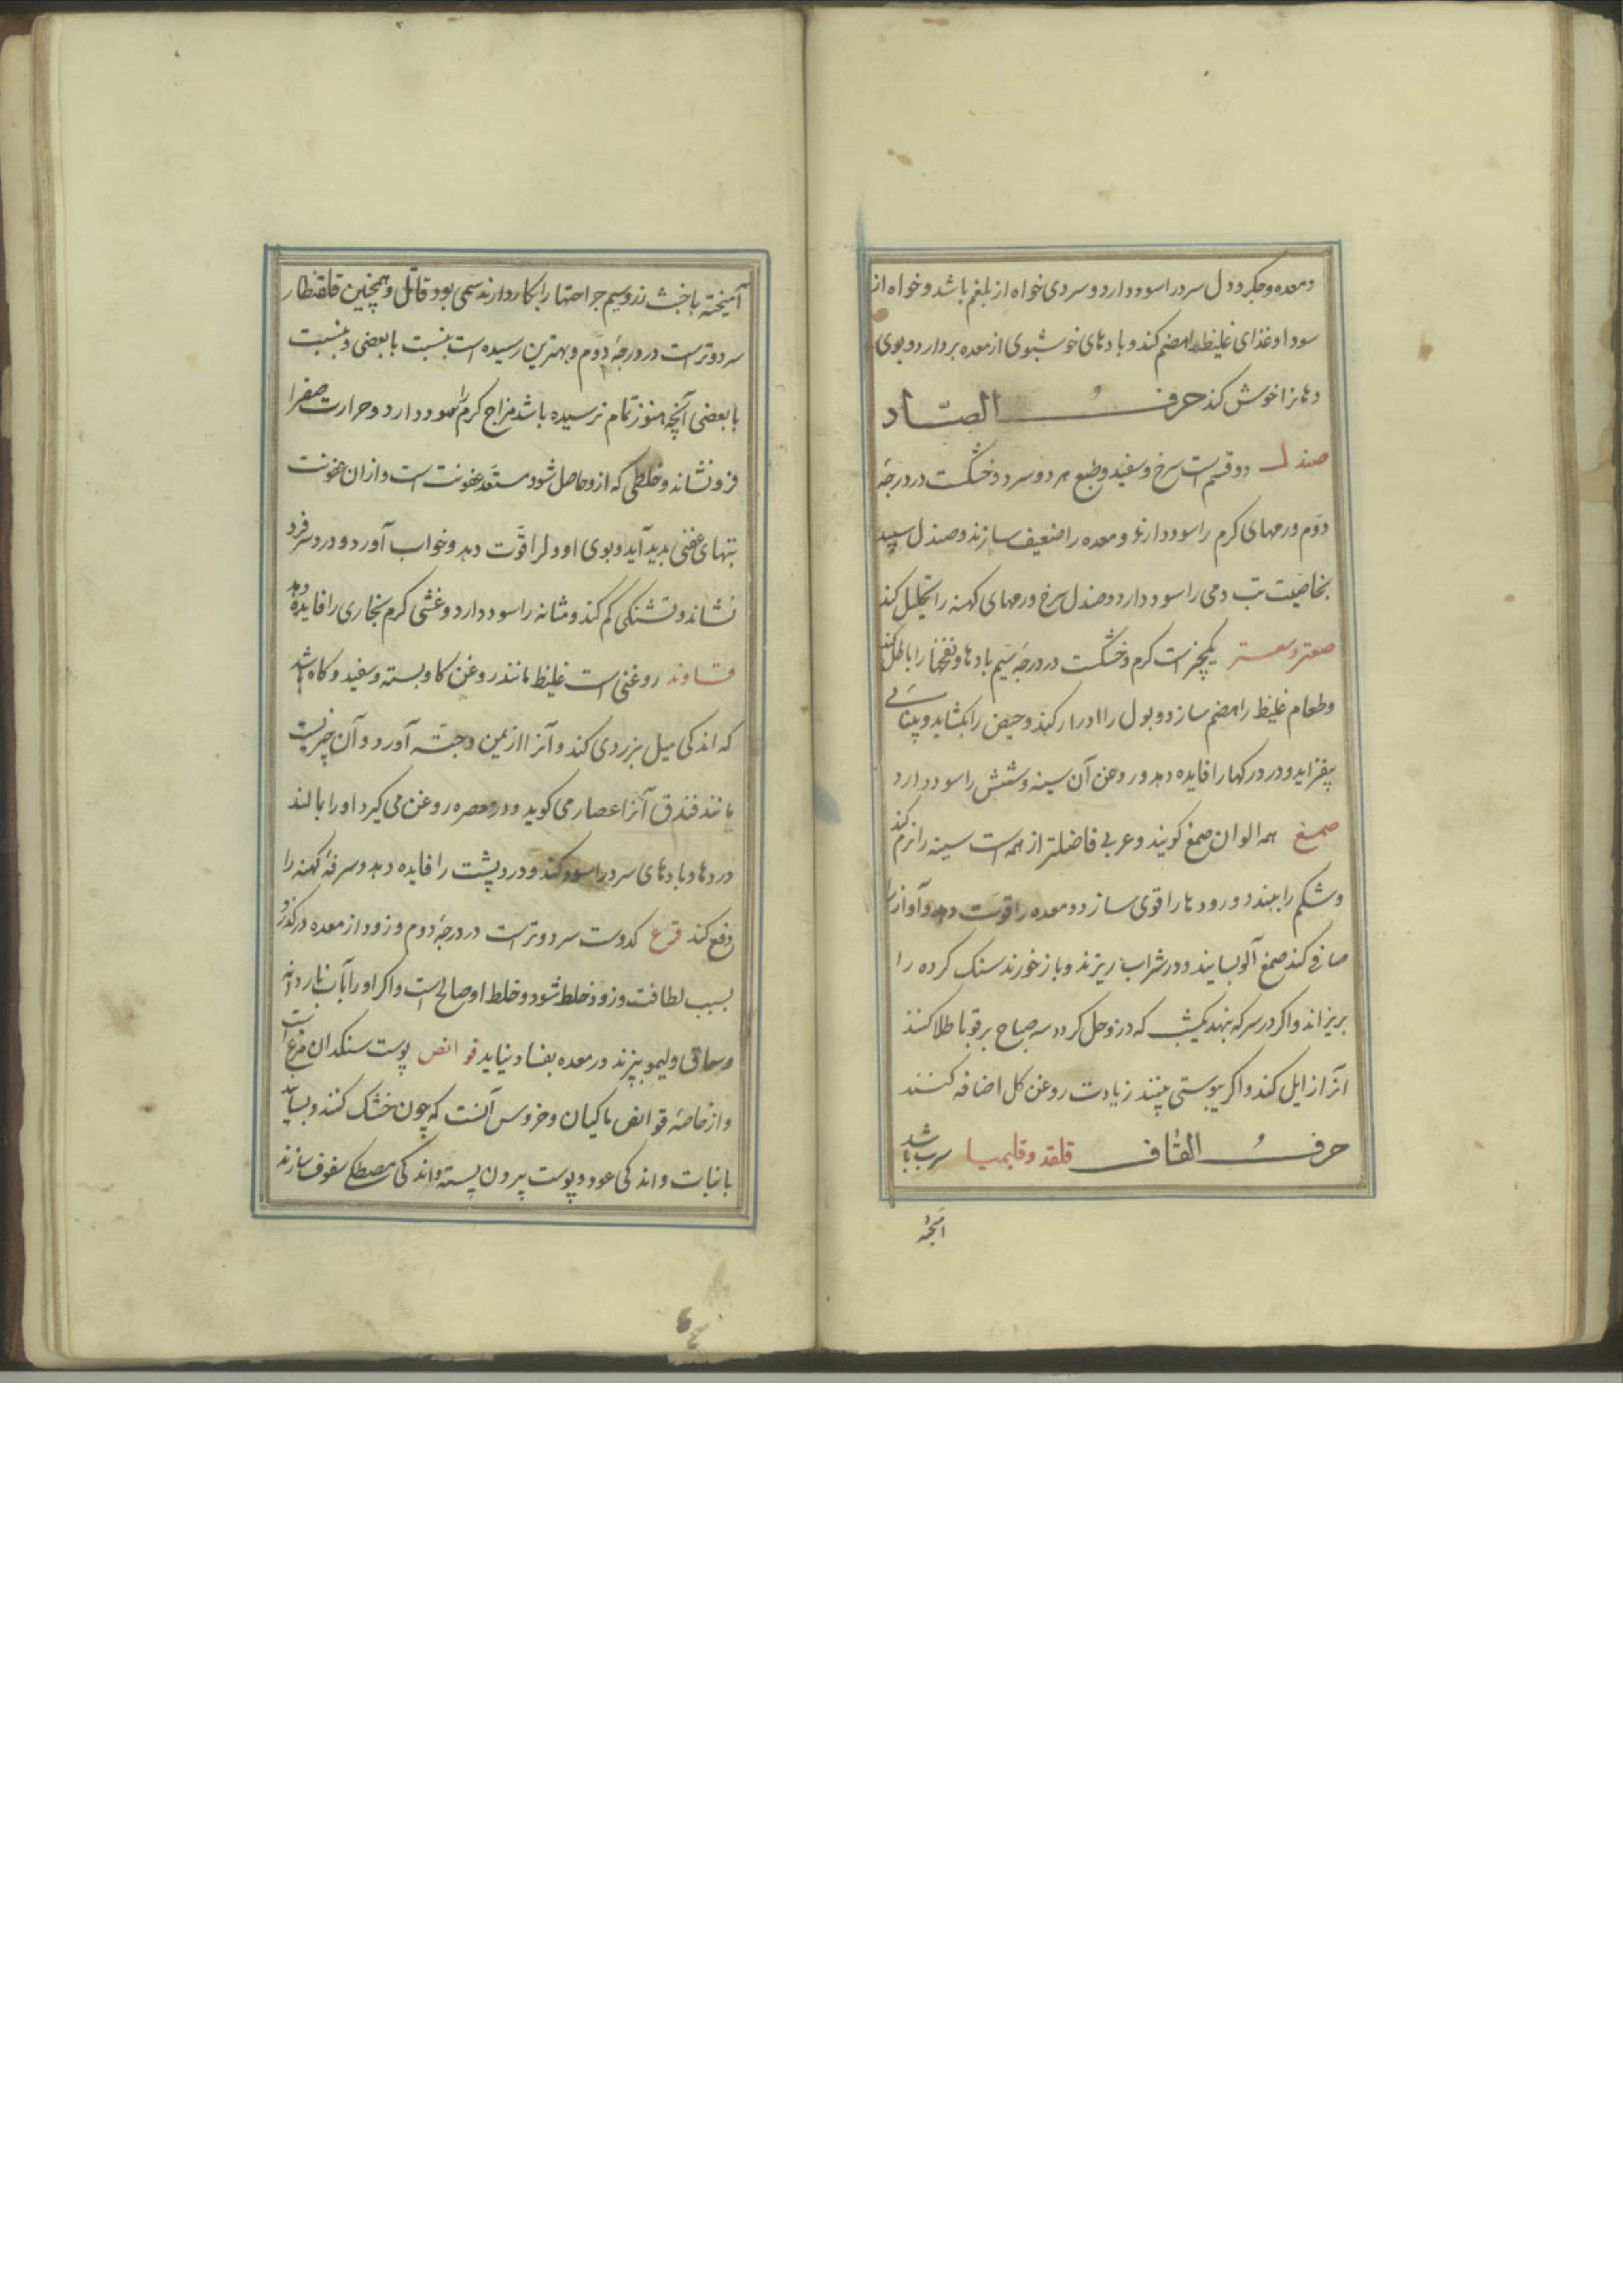 و معده و جکر و دل سرد را سود دارد و سردی خواه از بلغم باشد و خواه از
سودا و غذای غلیظ را هضم کند و بادهای خوشبوی از معده بردارد و بوی
دهانرا خوش کند حرف الصّاد
صندل دو قسم است سرخ و سفید و طبع هر دو سرد و خشکست در درجهٔ
دوّم ورمهای کرم را سود دارند و معده را ضعیف سازند و صندل سپید
بخاصّیت تب دمی را سود دارد و صندل سرخ ورمهای کهنه را تحلیل کند
صعتر و سعتر یکچیز است کرم و خشکست در درجهٔ سیّم بادها و نفخها را باطل کند
و طعام غلیظ را هضم سازد و بول را ادرار کند و حیض را بکشاید و بینائی
بیفزاید و درد رکها را فایده دهد و روغن آن سینه و شش را سود دارد
صمغ همه الوان صمغ کویند و عربی فاضلتر از همه است سینه را نرم کند
و شکم را ببندد و رودها را قوی سازد و معده را قوّت دهد و آواز را
صافی کند صمغ آلو بسایند و در شراب ریزند و باز خورند سنک کرده را
بریزاند و اکر در سرکه نهند یکشب که درو حل کردد سه صباح بر قوبا طلا کنند
آنرا زایل کند و اکر یبوستی بینند زیادت روغن کل اضافه کنند
حرف القاف قلقد و قلیمیا سرب باشد
آمیخته
آمیخته با خبث زر و سیم جراحتها را بکار دارند سمّی بود قاتل و همچنین قلقطار
سرد و ترست در درجهٔ دوّم و بهترین رسیده است بنسبت با بعضی و بنسبت
با بعضی آنچه هنوز تمام نرسیده باشد مزاج کرم را سود دارد و حرارت صفرا
فرو نشاند و خلطی که ازو حاصل شود مستعّد عفونت است و از ان عفونت
تبهای عفنی بدید آید و بوی او دلرا قوّت دهد و خواب آورد و درد سر فرو
نشاند و تشنکی کم کند و مثانه را سود دارد و غشی کرم بخاری را فایده دهد
قاوند روغنی است غلیظ مانند روغن کاو بسته و سفید و کاه باشد
که اندکی میل بزردی کند و آنرا از یمن و حبشه آورد و آن چیزیست
مانند فندق آنرا عصار می کوید و در معصره روغن می کیرد او را بمالند
دردها و بادهای سرد را سود کند و درد پشت را فایده دهد و سرفهٔ کهنه را
دفع کند قرع کدوست سرد و ترست در درجهٔ دوم و زود از معده درکذرد
بسبب لطافت و زود خلط شود و خلط او صالح است و اکر او را بآب ناردانه
و سماق و لیمو بپزند در معده بفساد نیاید قوانص پوست سنکدان مرغ است
و از خاصهٔ قوانص ماکیان و خروس آنست که چون خشک کنند و بسایند
با نبات و اندکی عود و پوست بیرون پسته و اندکی مصطکی سفوف سازند